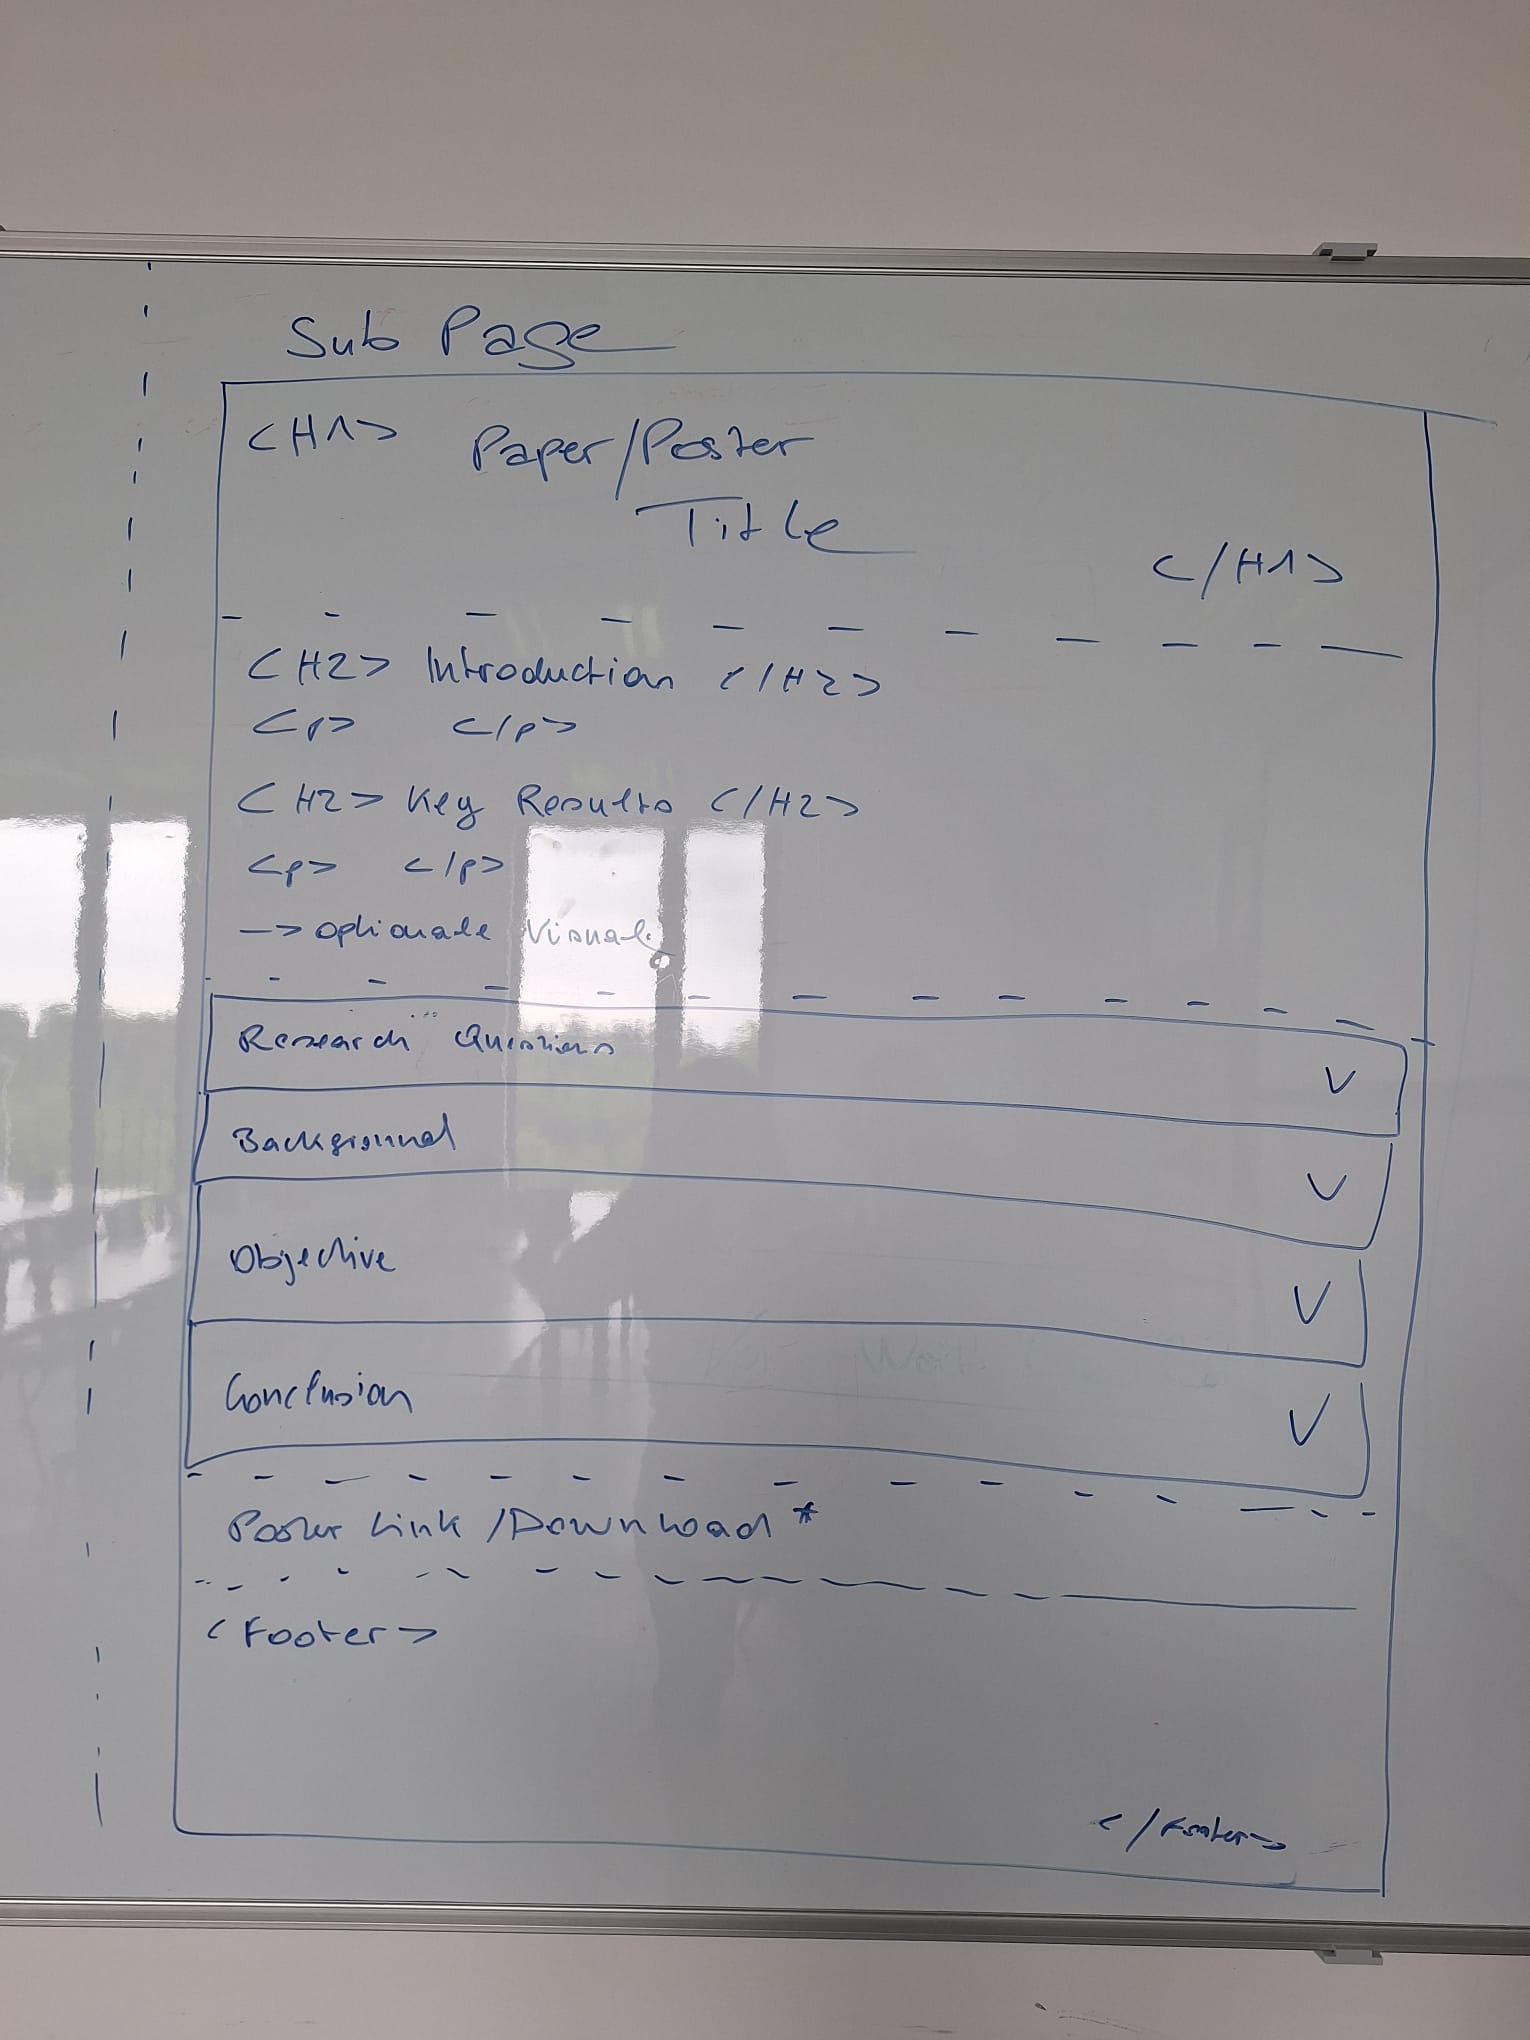 Sub Page
<H1> Paper/Poster
Title
</H1>
<H2> Introduction </H2>
<p> </p>
<H2> Key Results </H2>
<p> </p>
--> optionale Visuals
Research Questions V
Background V
Objective V
Conclusion V
Poster Link /Download *
<Footer>
</Footer>